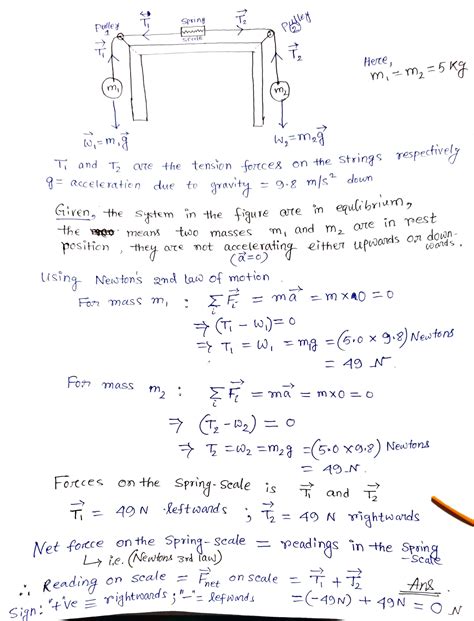 Pulley 1
T⃗₁
Spring scale
T⃗₂
Pulley 2
T⃗₁
T⃗₂
m₁
m₂
Here, m₁ = m₂ = 5 Kg
W⃗₁ = m₁g⃗
W⃗₂ = m₂g⃗
T⃗₁ and T⃗₂ are the tension forces on the strings respectively
g = acceleration due to gravity = 9.8 m/s² down
Given, the system in the figure are in equlibrium,
the means two masses m₁ and m₂ are in rest
position, they are not accelerating either upwards or down-
wards.
(a⃗=0)
Using Newton's 2nd law of motion
For mass m₁ : ∑ᵢ F⃗ᵢ = ma⃗ = m×0 = 0
⇒ (T₁ - W₁) = 0
⇒ T₁ = W₁ = mg = (5.0 × 9.8) Newtons
= 49 N.
For mass m₂ : ∑ᵢ F⃗ᵢ = ma⃗ = m×0 = 0
⇒ (T₂ - W₂) = 0
⇒ T₂ = W₂ = m₂g = (5.0 × 9.8) Newtons
= 49 N.
Forces on the Spring-scale is T⃗₁ and T⃗₂
T⃗₁ = 49 N leftwards ; T⃗₂ = 49 N rightwards
Net force on the Spring-scale = readings in the Spring
-scale
↳ i.e. (Newtons 3rd law)
∴ Reading on scale = F⃗net on scale = T⃗₁ + T⃗₂ Ans.
Sign: "+"ve ≡ rightwards ; "-" = lefwards = (-49N) + 49N = 0 N